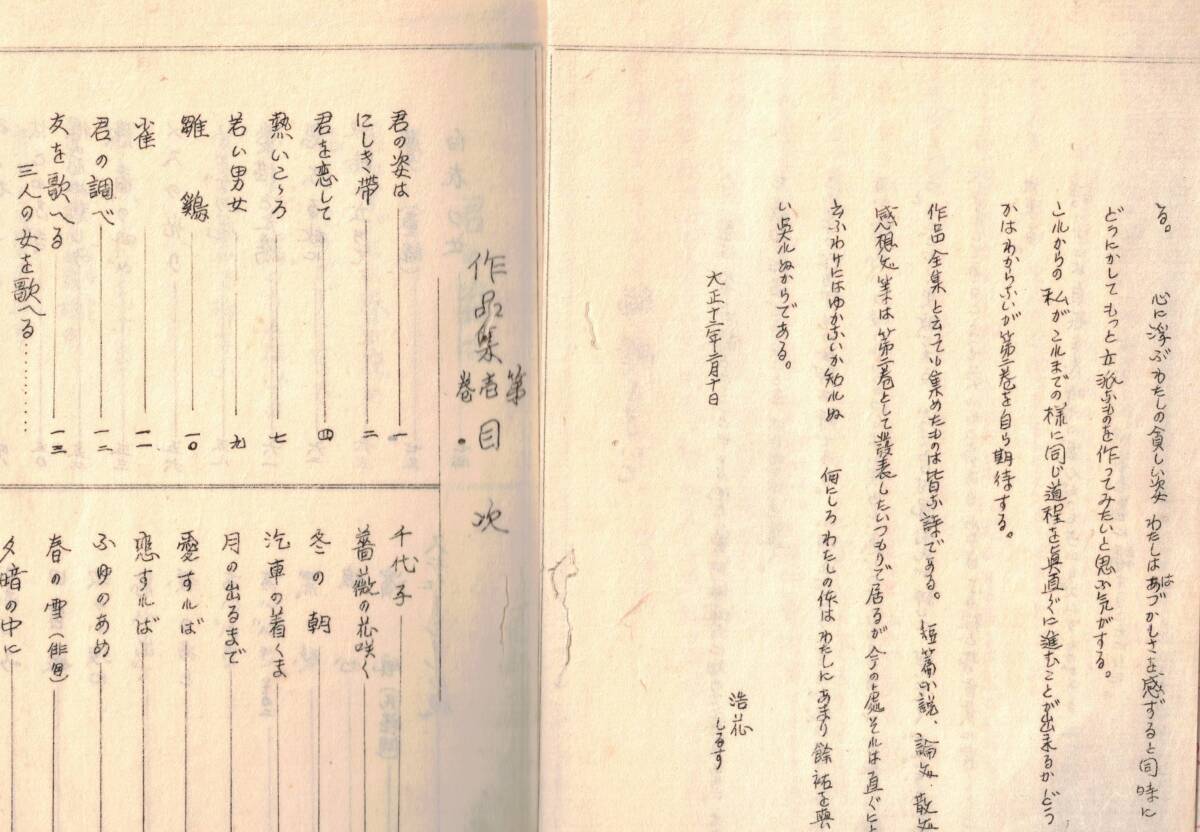 る。　心に浮ぶわたしの貧しい姿　わたしはあづかしさを感ずると同時に
は
どうにかしてもっと立派なものを作ってみたいと思ふ気がする。
これからの私がこれまでの様に同じ道程を眞直ぐに進むことが出来るかどう
かはわからないが第二巻を自ら期待する。
作品全集と云っても集めたものは皆な詩である。短篇小説、論文、散文
感想文等は第二巻として発表したいつもりで居るが今の處それは直ぐにと
云ふわけにはゆかないか知れぬ　何にしろわたしの体はわたしにあまり餘祐を與
い呉れぬからである。
大正十二年二月十日
浩花
しるす
作品集第壱巻・目次
君の姿は 一
にしき帯 二
君を恋して 四
熱いこゝろ 七
若い男女 九
雛鶏 一〇
雀 一一
君の調べ 一二
友を歌へる 一三
三人の女を歌へる…………
千代子
薔薇の花咲く
冬の朝
汽車の着くま
月の出るまで
愛すれば
恋すれば
ふゆのあめ
春の雪（俳句）
夕暗の中に